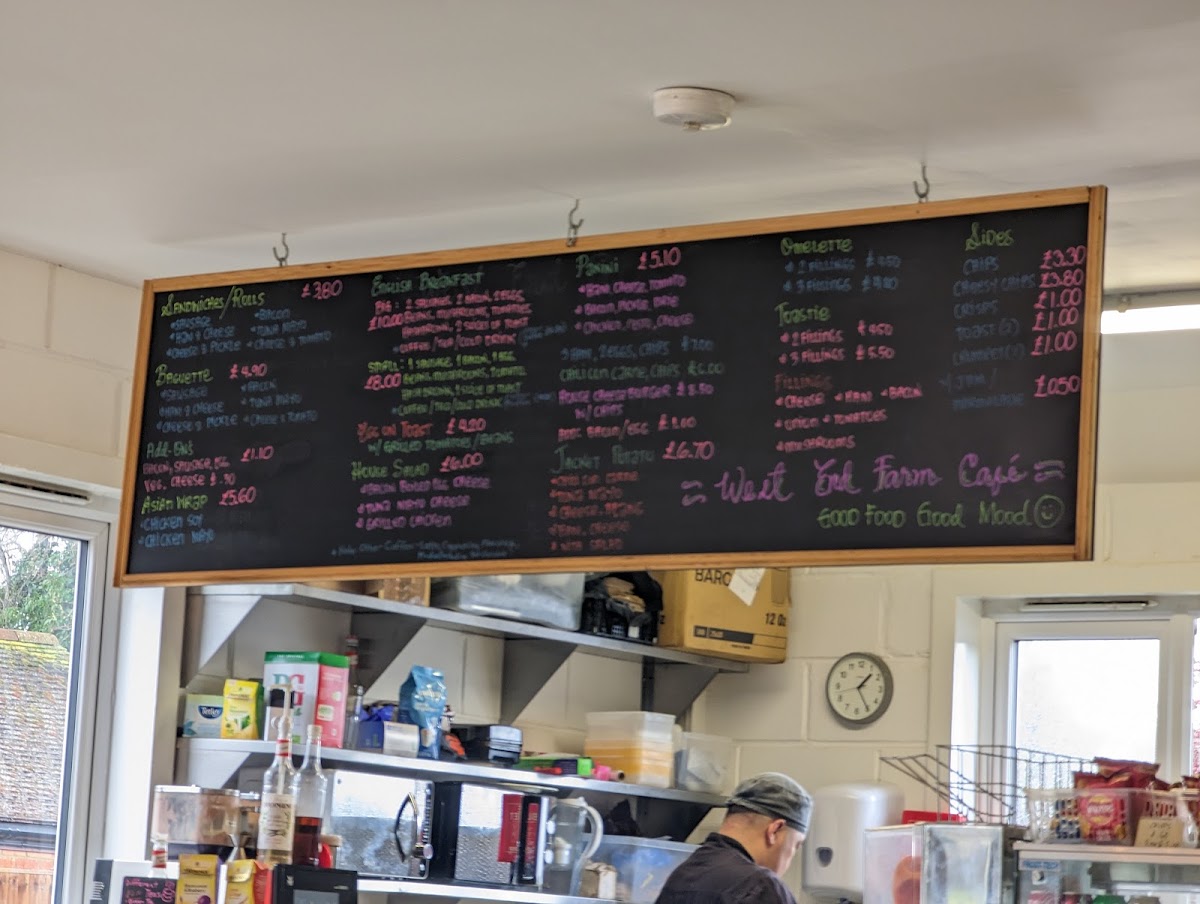 Sandwiches/Rolls £3.80
• Sausage • Bacon
• Ham & Cheese • Tuna Mayo
• Cheese & Pickle • Cheese & Tomato
Baguette £4.90
• Sausage • Bacon
• Ham & Cheese • Tuna Mayo
• Cheese & Pickle • Cheese & Tomato
Add-Ons £1.10
Bacon, Sausage, Egg
Veg, Cheese
Asian Wrap £5.60
• Chicken Soy
• Chicken Mayo
English Breakfast
Big: 2 Sausage, 2 Bacon, 2 Eggs,
£10.00 Beans, Mushrooms, Tomatoes,
Hashbrown, 2 Slices of Toast
• Coffee/Tea/Cold Drink
Small: 1 Sausage, 1 Bacon, 1 Egg
£8.00 Beans, Mushrooms, Tomato,
Hashbrown, 1 Slice of Toast
• Coffee/Tea/Cold Drink
Egg on Toast £4.20
w/ Grilled Tomatoes/Beans
House Salad £6.00
• Bacon Boiled Egg Cheese
• Tuna Mayo Cheese
• Grilled Chicken
• Note: Other Coffee-
Panini £5.10
• Ham, Cheese, Tomato
• Bacon, Pickle, Brie
• Chicken, Pesto, Cheese
Ham, 2 Eggs, Chips £7.00
Chili Con Carne, Chips £6.00
House Cheeseburger £8.50
w/ Chips
Add: Bacon/Egg
Jacket Potato £6.70
• Chili Con Carne
• Tuna Mayo
• Cheese, Beans
• Ham, Cheese
• w/ Salad
Omelette
• 2 Fillings
• 3 Fillings
Toastie
• 2 Fillings £4.50
• 3 Fillings £5.50
Fillings
• Cheese • Ham • Bacon
• Onion • Tomatoes
• Mushrooms
Sides
Chips £3.30
Cheesy Chips £3.80
Crisps £1.00
Toast (2) £1.00
Crumpet £1.00
Jam/
Marmalade £0.50
West End Farm Café
Good Food Good Mood
BARO
12 Oz
Tetley
PG
12